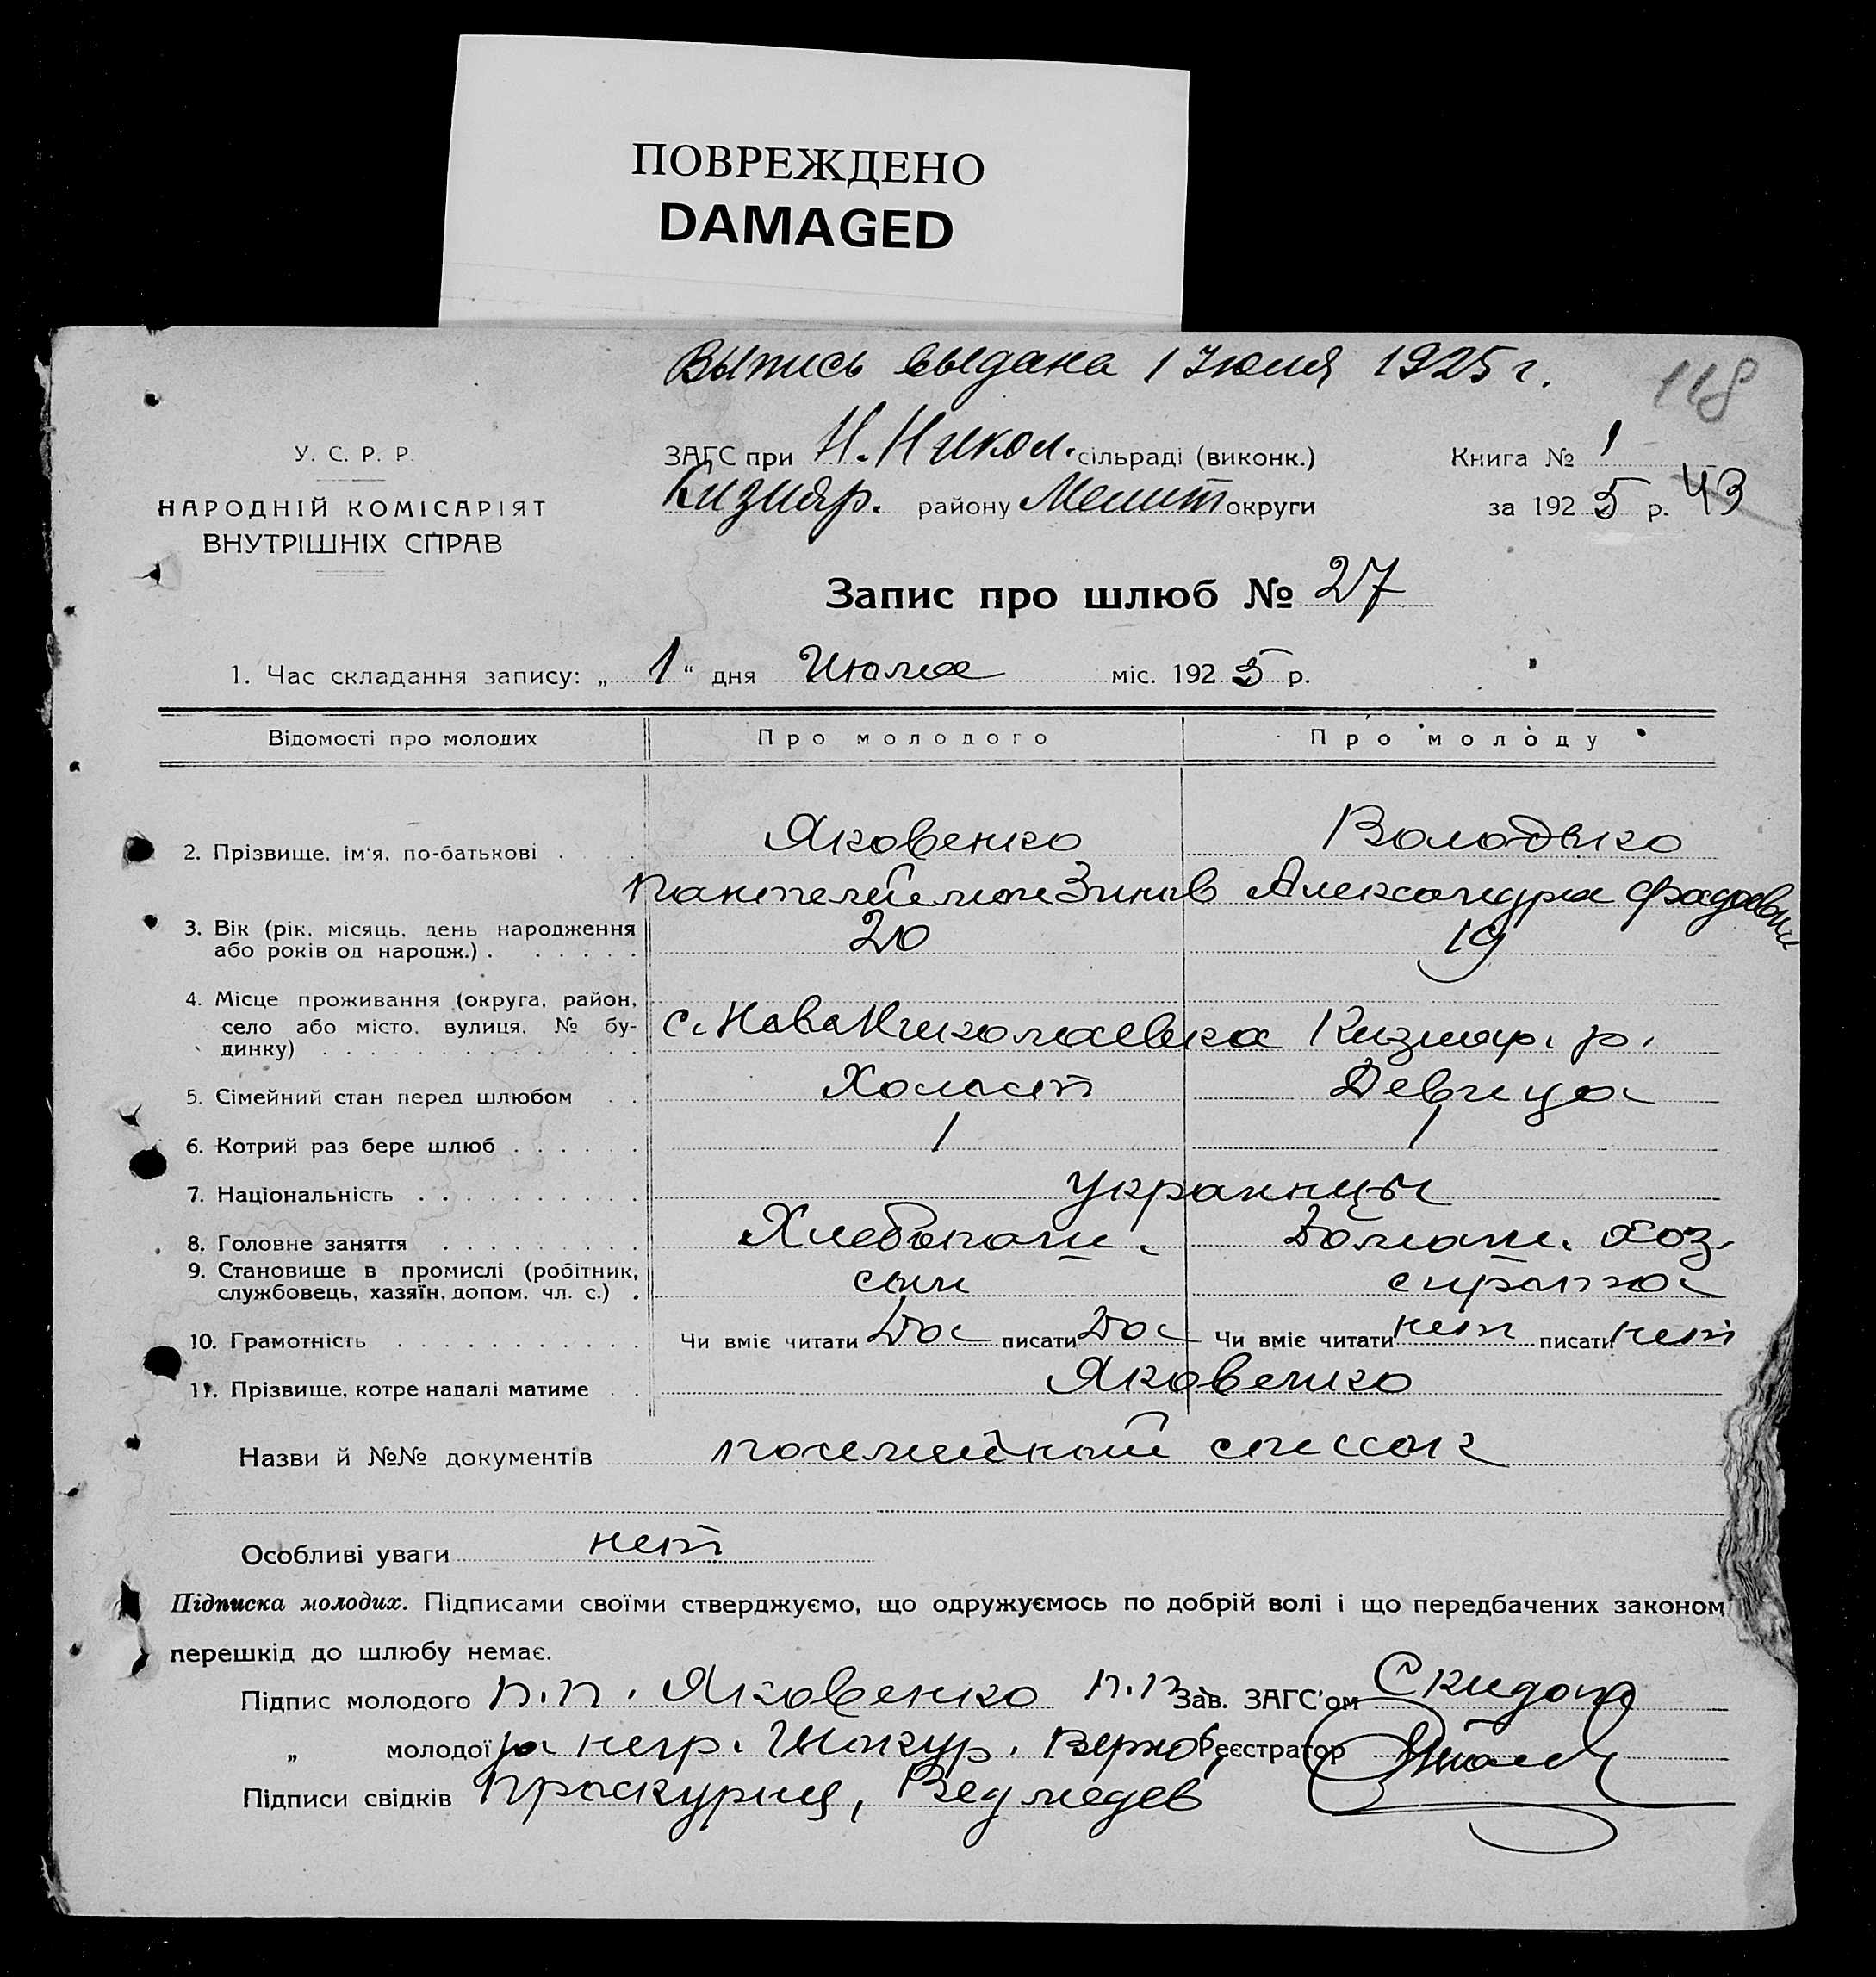 ПОВРЕЖДЕНО
DAMAGED
Выпись выдана 1 Июля 1925 г.
118
У. С. Р. Р.
НАРОДНІЙ КОМІСАРІЯТ
ВНУТРІШНІХ СПРАВ
ЗАГС при Н. Никол. сільраді (виконк.)
Кизияр. району Мелит округи
Книга № 1
за 1925 р. 43
Запис про шлюб № 27
1. Час складання запису: „ 1 “ дня Июля міс. 1925 р.
Відомості про молодих Про молодого Про молоду
2. Прізвище, ім'я, по-батькові . Яковенко Володько
Пантелеймон Зинов Александра Фадеевна
3. Вік (рік, місяць, день народження 20 19
або років од народж.) . . . . . .
4. Місце проживання (округа, район,
село або місто, вулиця, № бу- с. НовоНиколаевка Кизияр. р.
динку) . . . . . . . . . . . . . .
5. Сімейний стан перед шлюбом . . Холост Девица
6. Котрий раз бере шлюб . . . . . . 1 1
7. Національність . . . . . . . . . . Украинцы
8. Головне заняття . . . . . . . . . Хлебопаш. Домаш. хоз.
9. Становище в промислі (робітник,
службовець, хазяїн, допом. чл. с.) . сын сирота
10. Грамотність . . . . . . . . . . . Чи вміє читати Да писати Да Чи вміє читати нет писати нет
11. Прізвище, котре надалі матиме . . Яковенко
Назви й №№ документів посемейный список
Особливі уваги нет
Підписка молодих. Підписами своїми стверджуємо, що одружуємось по добрій волі і що передбачених законом
перешкід до шлюбу немає.
Підпис молодого п.п. Яковенко п.п Зав. ЗАГС'ом
„ молодої за негр. Реєстратор
Підписи свідків Ведмедев